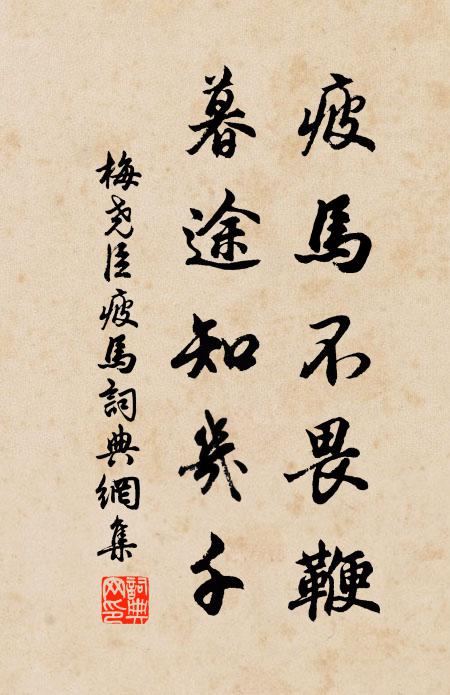 疲馬不畏鞭
暮途知幾千
梅尧臣疲馬詞典網集